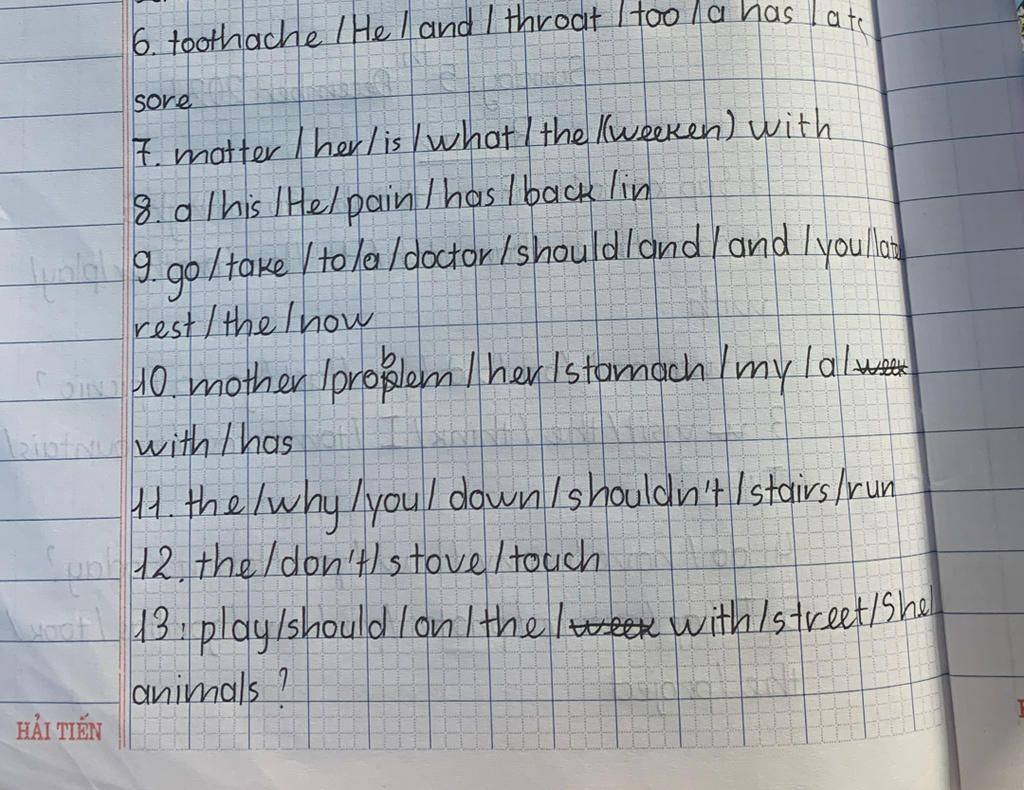 6. toothache / He / and / throat / too / a has / a
sore
7. matter / her / is / what / the / (weeken) with
8. a / his / He / pain / has / back / in
9. go / take / to / a / doctor / should / and / and / you /
rest / the / now
10. mother / problem / her / stomach / my / a / week
with / has
11. the / why / you / down / shouldn't / stairs / run
12. the / don't / stove / touch
13: play / should / on / the / week with / street / She
animals ?
HẢI TIẾN